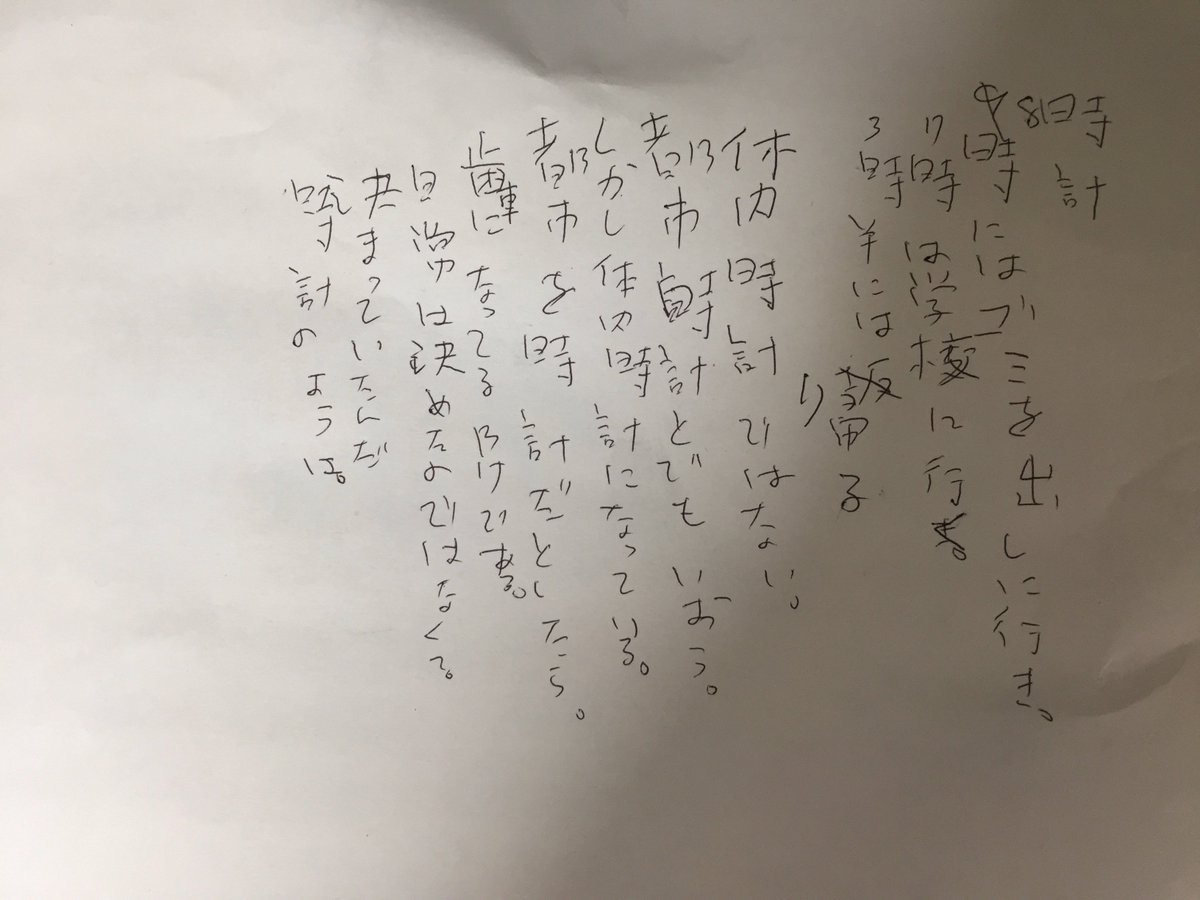 時計
8時にはゴミを出しに行き。
17時は学校に行き。
3時半には帰る
体内時計ではない。
都市時計とでもいおう。
しかし体内時計になっている。
都市を時計だとしたら。
歯車になってるわけである。
日常は決めたのではなくて。
決まっていたんだ
時計のように。